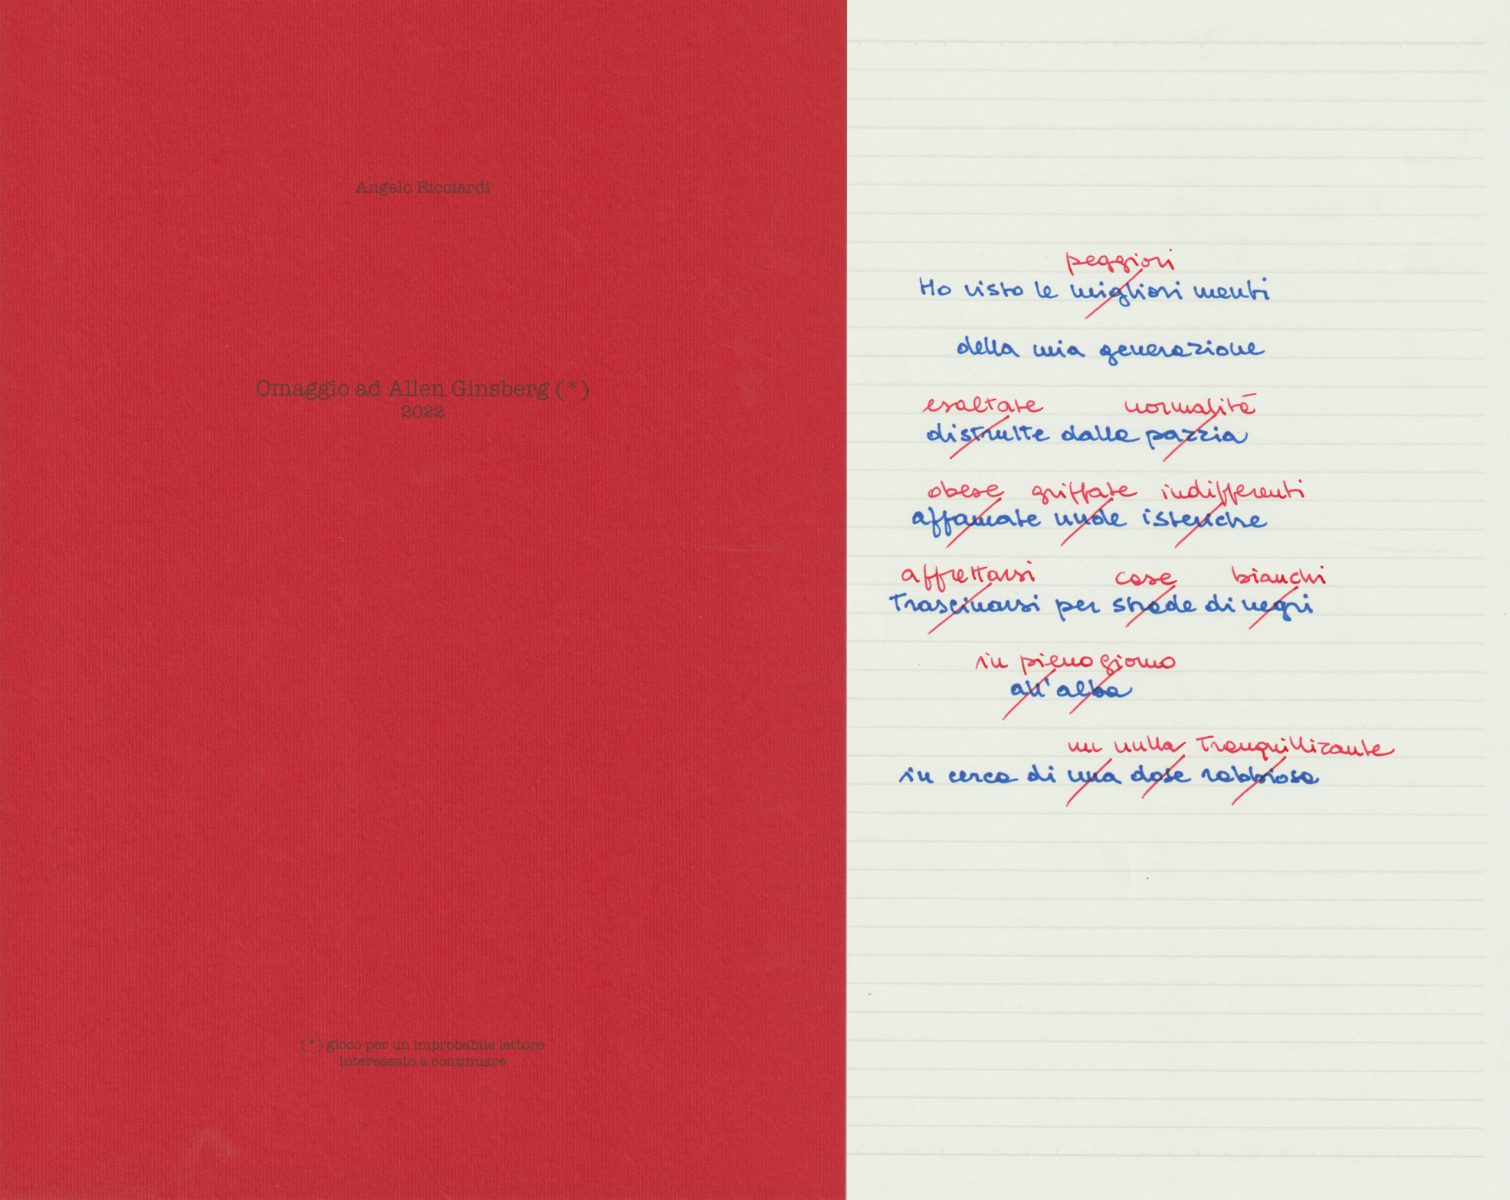 Angelo Ricciardi
Omaggio ad Allen Ginsberg (*)
2022
(*) gioco per un improbabile lettore
interessato a continuare
peggiori
Ho visto le migliori menti
della mia generazione
esaltate normalità
distrutte dalla pazzia
obese griffate indifferenti
affamate nude isteriche
affrettarsi case bianchi
Trascinarsi per strade di negri
in pieno giorno
all'alba
un nulla Tranquillizante
in cerca di una dose rabbiosa